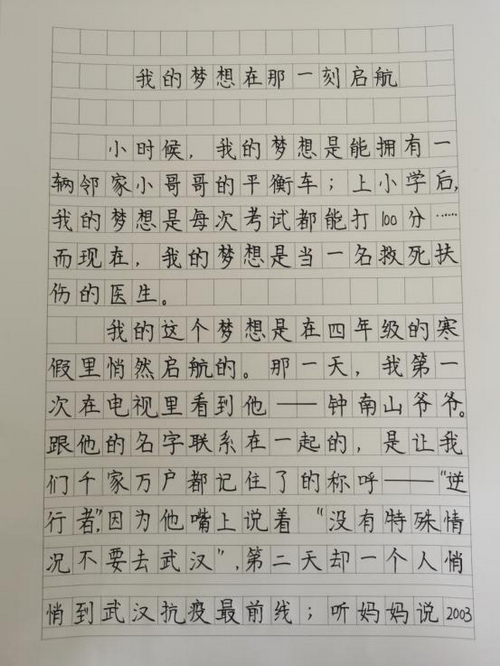 我的梦想在那一刻启航
小时候，我的梦想是能拥有一
辆邻家小哥哥的平衡车；上小学后，
我的梦想是每次考试都能打100分……
而现在，我的梦想是当一名救死扶
伤的医生。
我的这个梦想是在四年级的寒
假里悄然启航的。那一天，我第一
次在电视里看到他——钟南山爷爷。
跟他的名字联系在一起的，是让我
们千家万户都记住了的称呼——“逆
行者”，因为他嘴上说着“没有特殊情
况不要去武汉”，第二天却一个人悄
悄到武汉抗疫最前线；听妈妈说2003